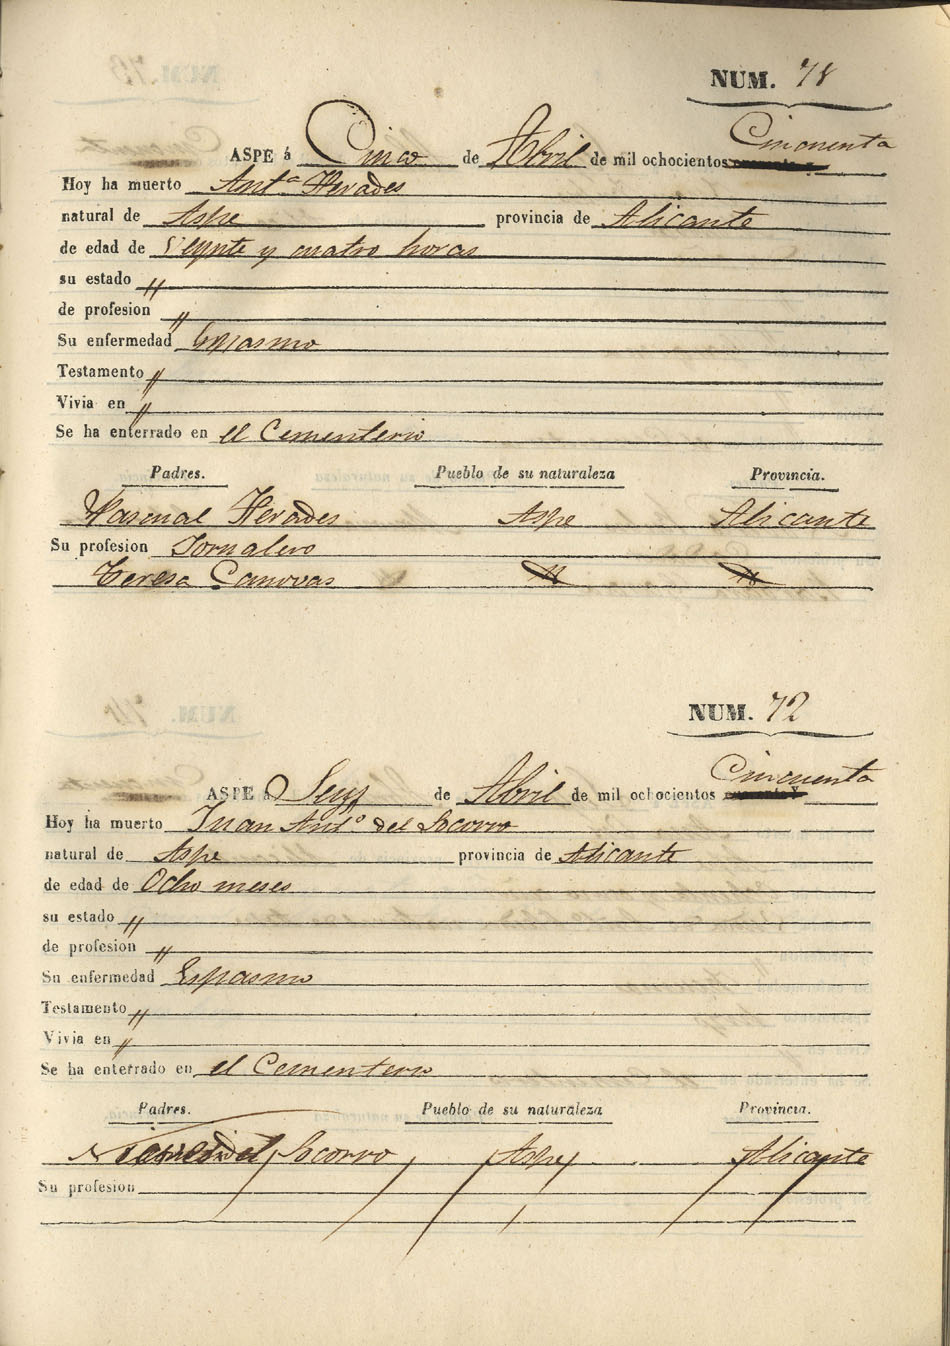 NUM. 71
Cincuenta
ASPE á Cinco de Abril de mil ochocientos
Hoy ha muerto Antª Herades
natural de Aspe provincia de Alicante
de edad de Veynte y cuatro horas
su estado "
de profesion "
Su enfermedad Espasmo
Testamento "
Vivia en "
Se ha enterrado en el Cementerio
Padres. Pueblo de su naturaleza Provincia.
Pascual Herades Aspe Alicante
Su profesion Jornalero
Teresa Canovas " "
NUM. 72
Cincuenta
ASPE á Seys de Abril de mil ochocientos
Hoy ha muerto Juan Antº del Socorro
natural de Aspe provincia de Alicante
de edad de Ocho meses
su estado "
de profesion "
Su enfermedad Espasmo
Testamento "
Vivia en "
Se ha enterrado en el Cementerio
Padres. Pueblo de su naturaleza Provincia.
del Socorro Aspe Alicante
Su profesion